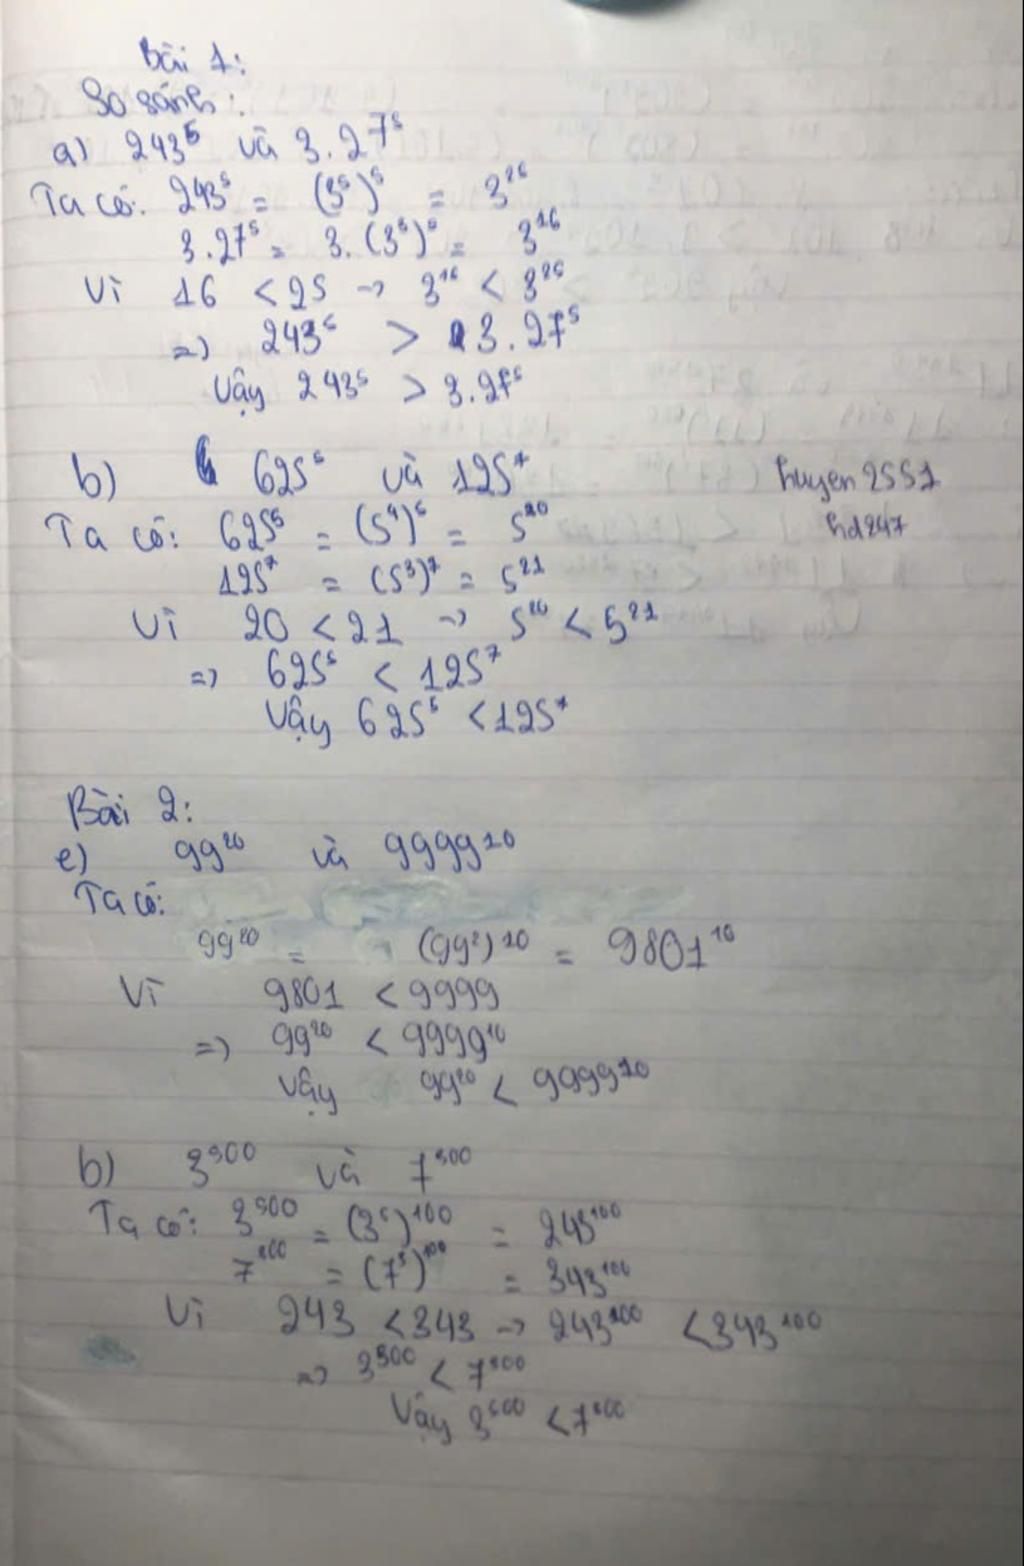 Bài 1:
So sánh:
a) 243⁵ và 3.27⁵
Ta có: 243⁵ = (3⁵)⁵ = 3²⁵
3.27⁵ = 3.(3³)⁵ = 3¹⁶
Vì 16 < 25 → 3¹⁶ < 3²⁵
=> 243⁵ > 3.27⁵
Vậy 243⁵ > 3.27⁵
b) 625⁵ và 125⁷
huyen2551
Ta có: 625⁵ = (5⁴)⁵ = 5²⁰
hd247
125⁷ = (5³)⁷ = 5²¹
Vì 20 < 21 → 5²⁰ < 5²¹
=> 625⁵ < 125⁷
Vậy 625⁵ < 125⁷
Bài 2:
e) 99²⁰ và 9999¹⁰
Ta có:
99²⁰ = (99²)¹⁰ = 9801¹⁰
Vì 9801 < 9999
=> 99²⁰ < 9999¹⁰
Vậy 99²⁰ < 9999¹⁰
b) 3⁵⁰⁰ và 7³⁰⁰
Ta có: 3⁵⁰⁰ = (3⁵)¹⁰⁰ = 243¹⁰⁰
7³⁰⁰ = (7³)¹⁰⁰ = 343¹⁰⁰
Vì 243 < 343 → 243¹⁰⁰ < 343¹⁰⁰
=> 3⁵⁰⁰ < 7³⁰⁰
Vậy 3⁵⁰⁰ < 7³⁰⁰